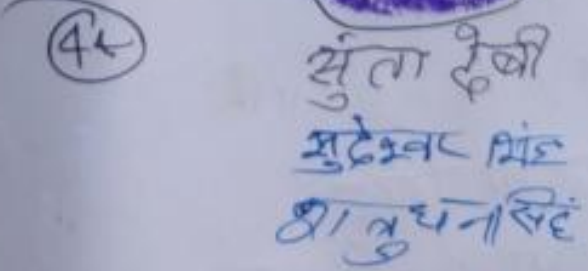 44
सुंता देवी
सुदेश्वर सिंह
शत्रुधन सिंह